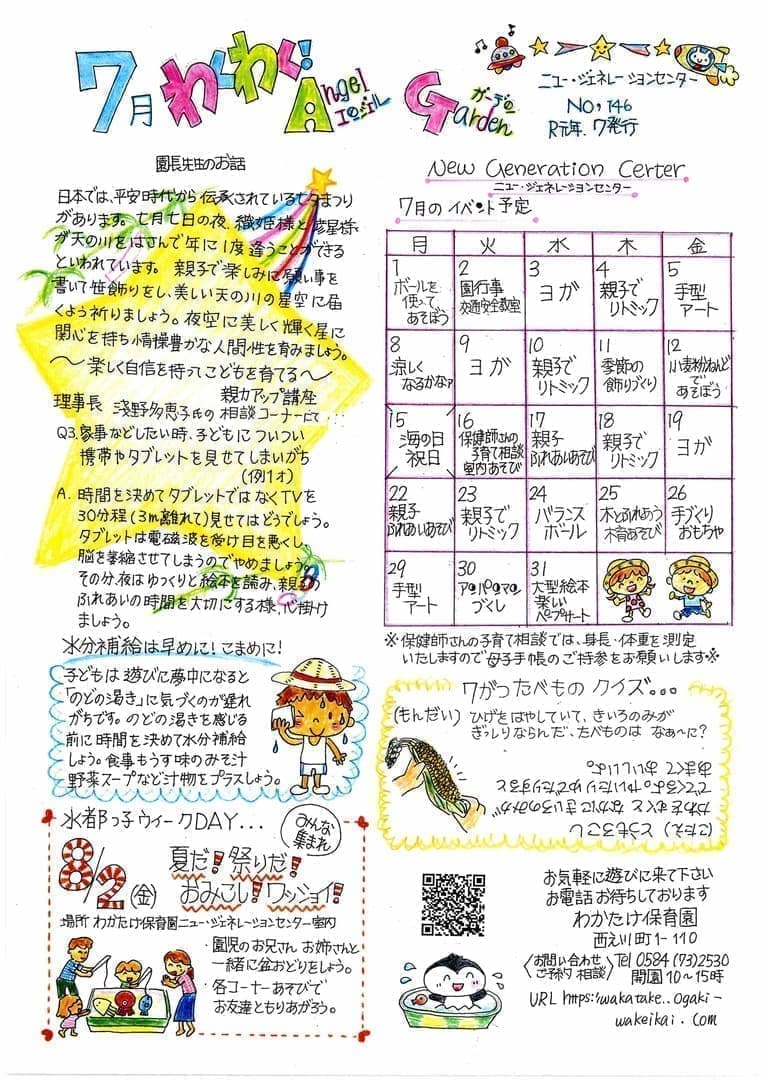 7月 わくわく! Angel エンジェル Garden ガーデン
ニュー・ジェネレーションセンター
NO,146
R元年.7発行
園長先生のお話
日本では、平安時代から伝承されている七夕まつり
があります。七月七日の夜、織姫様と彦星様
が天の川をはさんで年に1度逢うことができる
といわれています。親子で楽しみに願い事を
書いて笹飾りをし、美しい天の川の星空に届
くよう祈りましょう。夜空に美しく輝く星に
関心を持ち情操豊かな人間性を育みましょう。
〜楽しく自信を持ってこどもを育てる〜
親力アップ講座
理事長 浅野多恵子氏の相談コーナーにて...
Q3.家事などしたい時、子どもについつい
携帯やタブレットを見せてしまいがち
(例1才)
A. 時間を決めてタブレットではなくTVを
30分程(3m離れて)見せてはどうでしょう。
タブレットは電磁波を受け目を悪くし、
脳を萎縮させてしまうのでやめましょう。
その分、夜はゆっくりと絵本を読み、親子の
ふれあいの時間を大切にする様、心掛け
ましょう。
水分補給は早めに!こまめに!
子どもは遊びに夢中になると
「のどの渇き」に気づくのが遅れ
がちです。のどの渇きを感じる
前に時間を決めて水分補給
しょう。食事もうす味のみそ汁
野菜スープなど汁物をプラスしょう。
水都っ子ウィークDAY...
みんな
集まれ
8/2(金)
夏だ!祭りだ!
おみこし!ワッショイ!
場所 わかたけ保育園ニュー・ジェネレーションセンター室内
・園児のお兄さんお姉さんと
一緒に盆おどりをしよう。
・各コーナーあそびで
お友達ともりあがろう。
New Generation Certer
ニュー・ジェネレーションセンター
7月のイベント予定
月 火 水 木 金
1 ボールを使ってあそぼう
2 園行事 交通安全教室
3 ヨガ
4 親子でリトミック
5 手型アート
8 涼しくなるかなァ
9 ヨガ
10 親子でリトミック
11 季節の飾りづくり
12 小麦粉ねんどであそぼう
15 海の日 祝日
16 保健師さんの子育て相談 室内あそび
17 親子ふれあいあそび
18 親子でリトミック
19 ヨガ
22 親子ふれあいあそび
23 親子でリトミック
24 バランスボール
25 木とふれあう木育あそび
26 手づくりおもちゃ
29 手型アート
30 アンパンマンづくし
31 大型絵本 楽しいペープサート
※保健師さんの子育て相談では、身長・体重を測定
いたしますので母子手帳のご持参をお願いします※
7がつたべもの クイズ...
(もんだい) ひげをはやしていて、きいろのみが
ぎっしりならんだ、たべものは なぁ〜に?
(こたえ) とうもろこし
お気軽に遊びに来て下さい
お電話お待ちしております
わかたけ保育園
西之川町1-110
お問い合わせ
ご予約 相談
Tel 0584(73)2530
開園10〜15時
URL https:wakatake..ogaki-
wakeikai.com